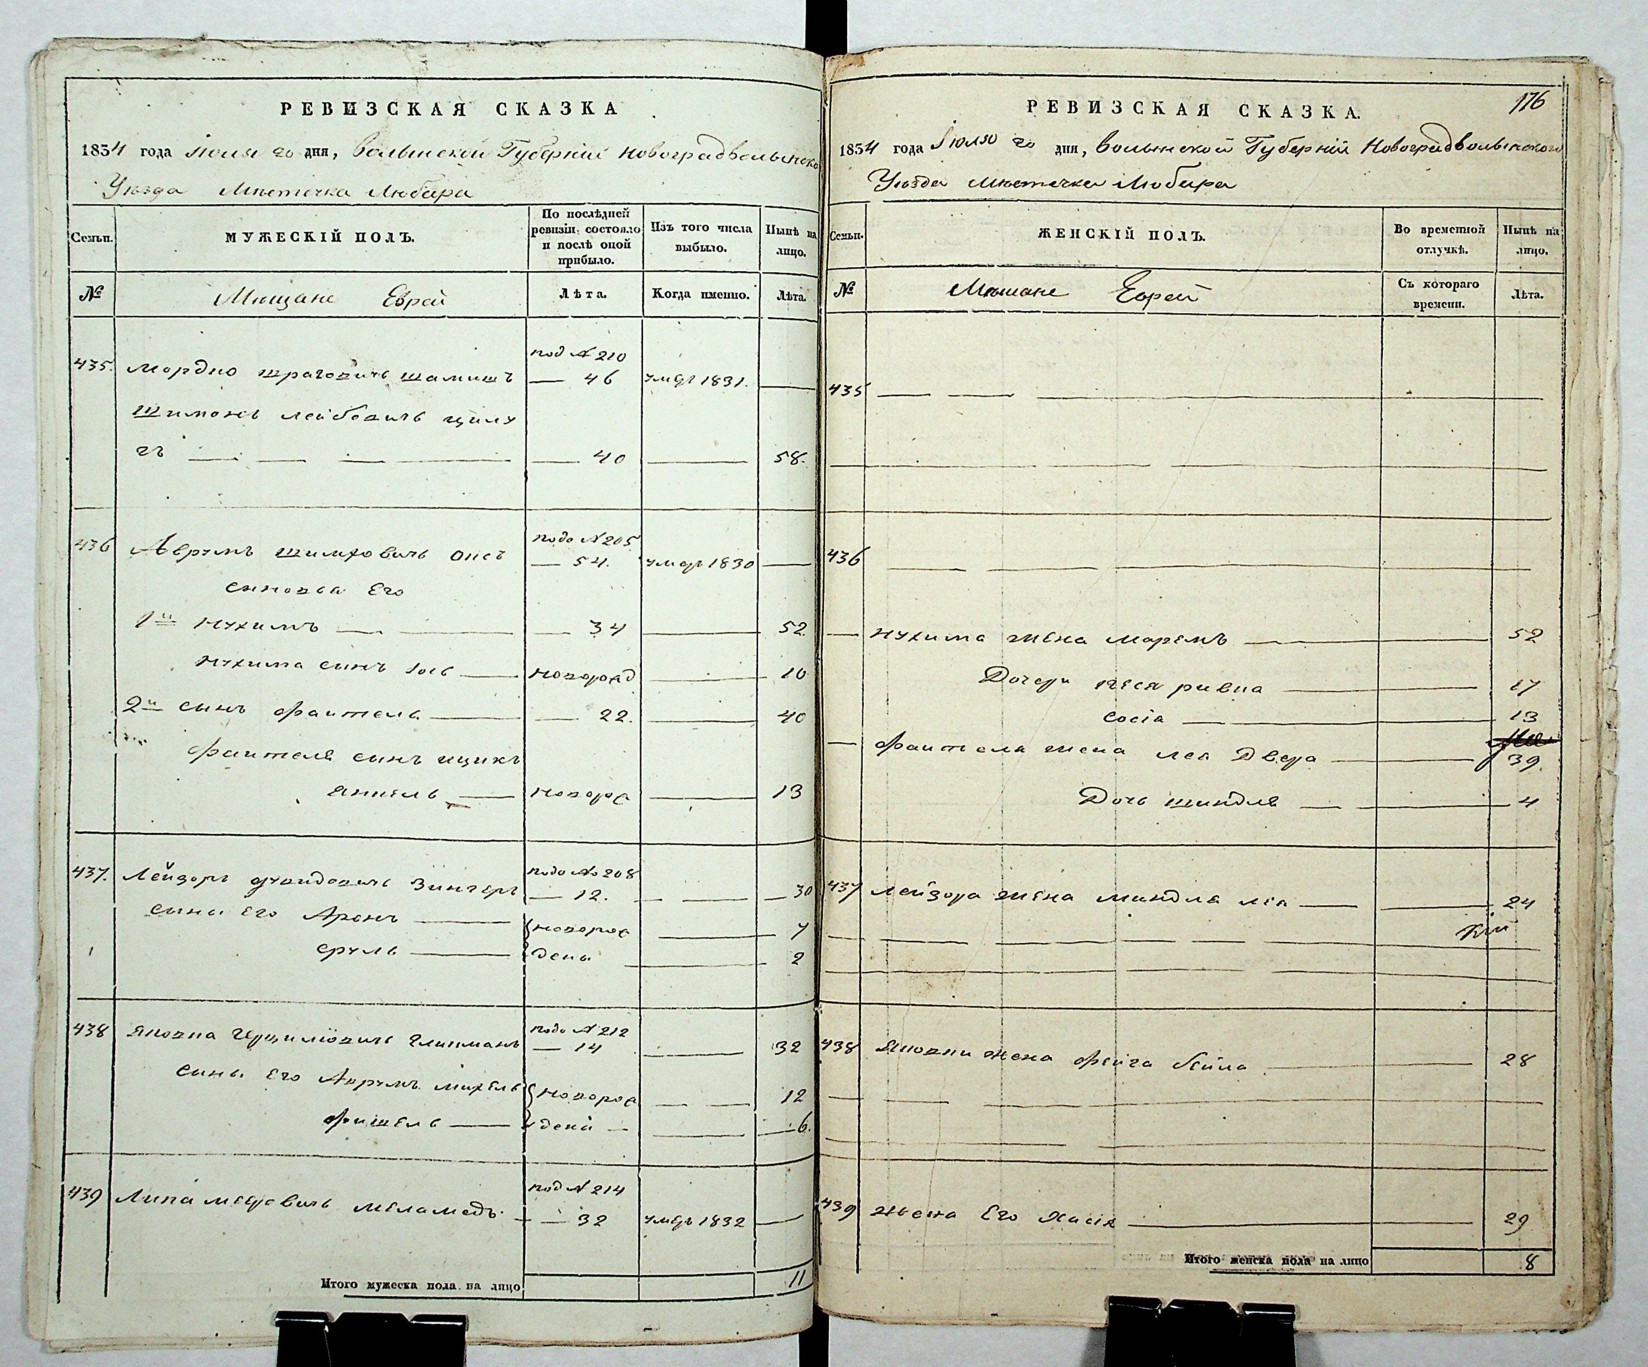 РЕВИЗСКАЯ СКАЗКА
1834 года Июля 20 дня, Волынской Губерніи Новоградволынско
Уѣзда Мѣстечка Любара
Семьи.
МУЖЕСКІЙ ПОЛЪ.
По послѣдней ревизіи состояло и послѣ оной прибыло.
Изъ того числа выбыло.
Нынѣ на лицо.
№
Мѣщане Еврей
Лѣта.
Когда именно.
Лѣта.
435. Мордко шраговичъ шамишъ
под № 210
— 46 умер 1831. —
Шимонъ лейбовичъ
— 40 — 58.
436 Аврумъ шимховичъ
подо № 205
— 54. умер 1830 —
сыновья Его
1й Нухимъ — — 34 — 52
Нухима сынъ Іось — новорож — 10
2й сынъ Файтель — — 22. — 40
Файтеля сынъ ицикъ
янкель — новорож — 13
437. Лейзоръ Зингеръ
подо № 208
— 12. — — 30
сыны Его Аронъ — новорож — 7
сруль — дены — 2
438 Яковка Герш Глипманъ
подо № 212
— 14 — 32
сыны Его Аврумъ Михель новорож — — 12
Фишель — дены — — 6.
439 Липа Меламедъ.
под № 214
— 32 умеръ 1832 —
Итого мужеска пола на лицо 11
176
РЕВИЗСКАЯ СКАЗКА.
1834 года Іюля 20 дня, Волынской Губерніи Новоградволынского
Уѣзда Мѣстечка Любара
Семьи.
ЖЕНСКІЙ ПОЛЪ.
Во временной отлучкѣ.
Нынѣ на лицо.
№
Мѣщане Еврей
Съ котораго времени.
Лѣта.
435 — — —
436 — — —
— Нухима жена Маремъ — 52
Дочери песя ривка — 17
сосія — 13
— Файтеля жена леа Двера — 39.
Дочь шиндля — — 4
437 Лейзора жена миндля леа — — 24
438 Яковки жена Фейга бейла — 28
439 Жена Его Хася — 29
Итого женска пола на лицо 8